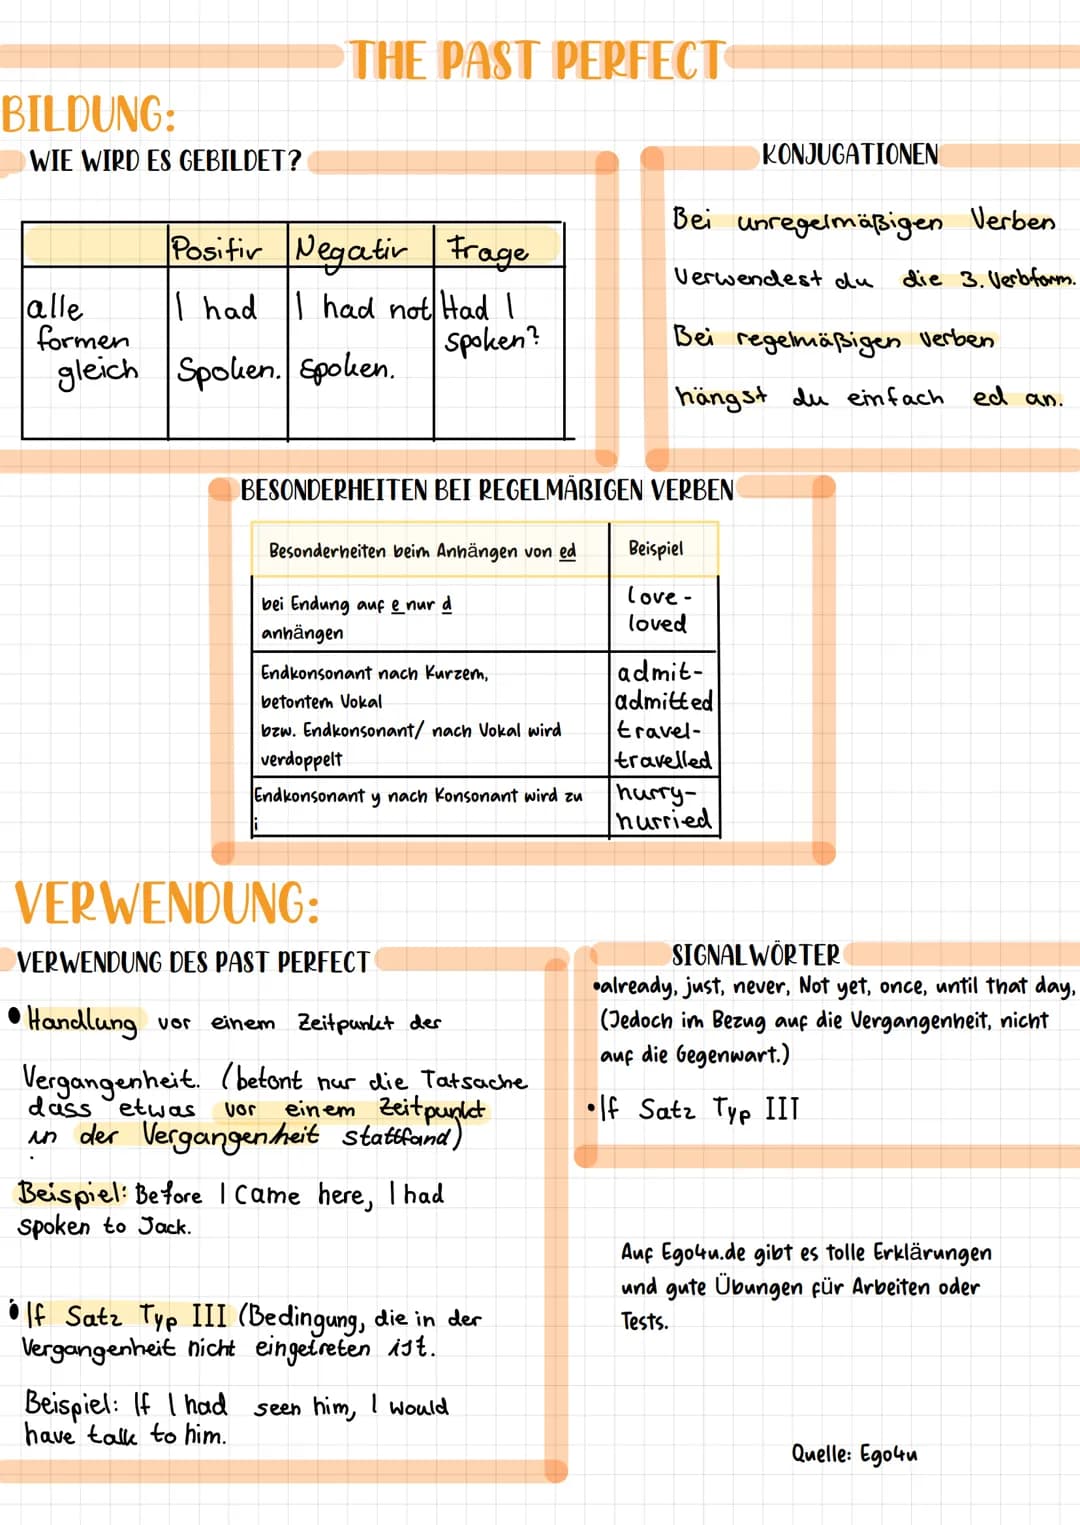 THE PAST PERFECT
BILDUNG:
WIE WIRD ES GEBILDET?
Positiv Negativ Frage
alle formen gleich
I had Spoken.
I had not spoken.
Had I spoken?
KONJUGATIONEN
Bei unregelmäßigen Verben
Verwendest du die 3. Verbform.
Bei regelmäßigen Verben
hängst du einfach ed an.
BESONDERHEITEN BEI REGELMÄßIGEN VERBEN
Besonderheiten beim Anhängen von ed Beispiel
bei Endung auf e nur d
anhängen
love -
loved
Endkonsonant nach Kurzem,
betontem Vokal
bzw. Endkonsonant/ nach Vokal wird
verdoppelt
admit-
admitted
travel-
travelled
Endkonsonant y nach Konsonant wird zu
i
hurry-
hurried
VERWENDUNG:
VERWENDUNG DES PAST PERFECT
• Handlung vor einem Zeitpunkt der
Vergangenheit. (betont nur die Tatsache
dass etwas vor einem Zeitpunkt
in der Vergangenheit stattfand)
Beispiel: Before I came here, I had
spoken to Jack.
• If Satz Typ III (Bedingung, die in der
Vergangenheit nicht eingetreten ist.
Beispiel: If I had seen him, I would
have talk to him.
SIGNALWÖRTER
•already, just, never, Not yet, once, until that day,
(Jedoch im Bezug auf die Vergangenheit, nicht
auf die Gegenwart.)
•If Satz Typ III
Auf Ego4u.de gibt es tolle Erklärungen
und gute Übungen für Arbeiten oder
Tests.
Quelle: Ego4u